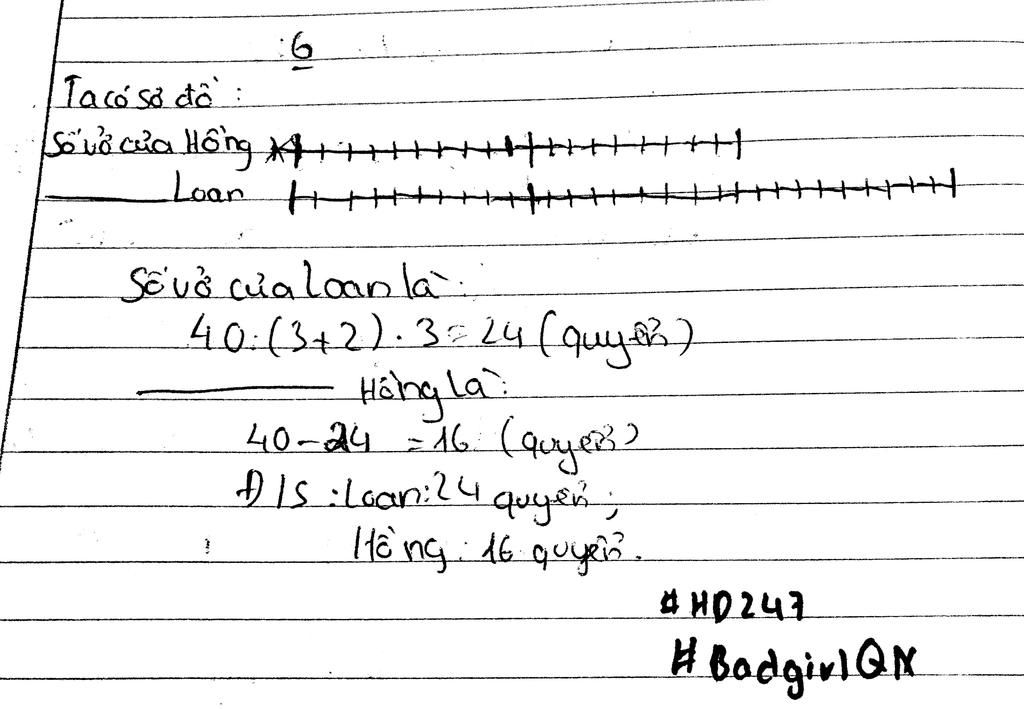 6
Ta có sơ đồ :
Số vở của Hồng
Loan
Số vở của Loan là :
40:(3+2).3=24 (quyển)
Hồng là :
40-24 =16 (quyển)
Đ/S :Loan:24 quyển ;
Hồng : 16 quyển.
#HD247
#BadgirlQN